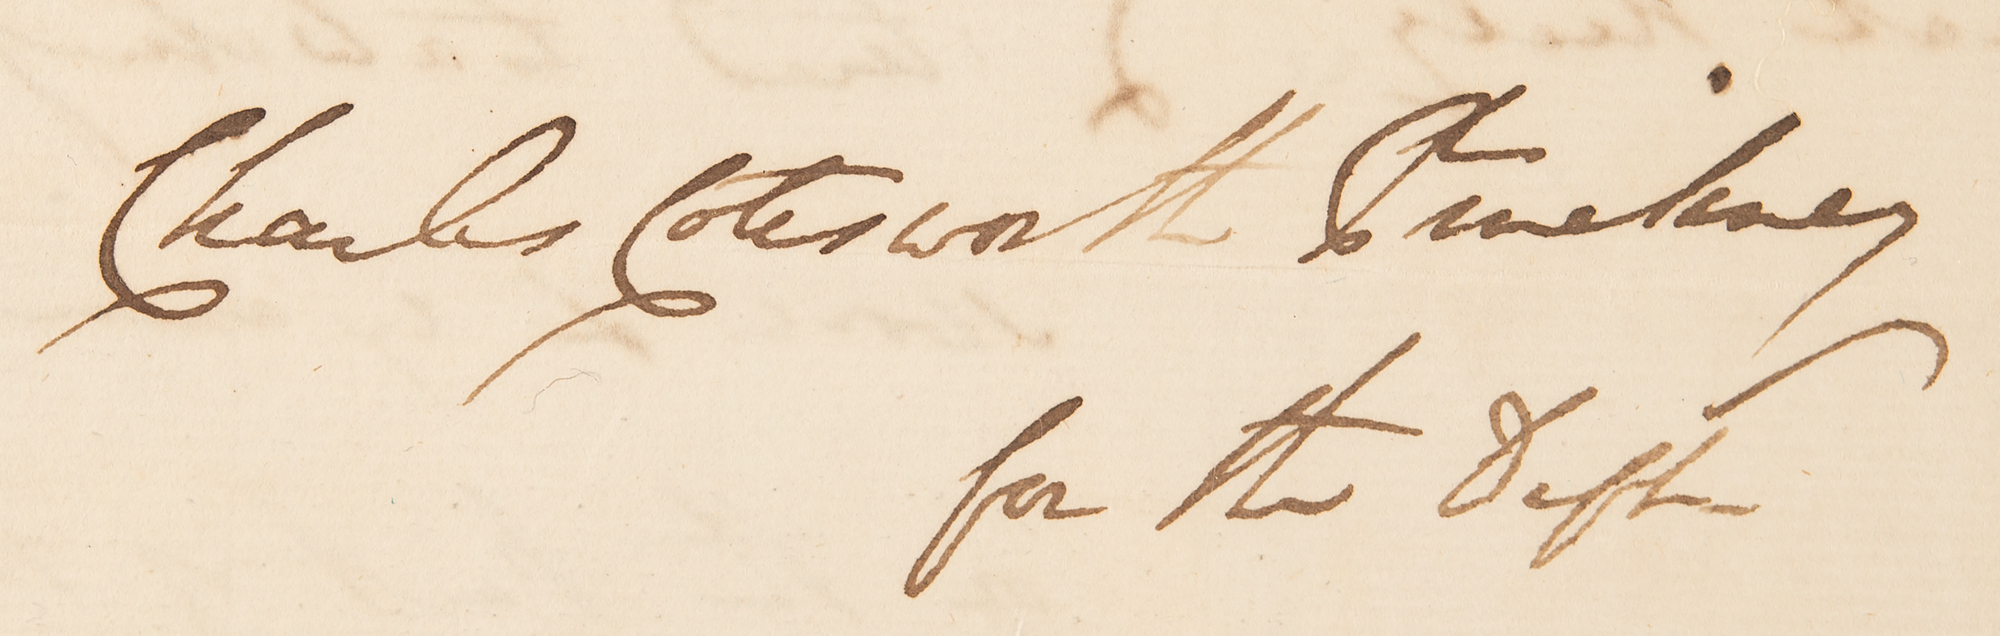 Charles Cotesworth Pinckney
for the Deft